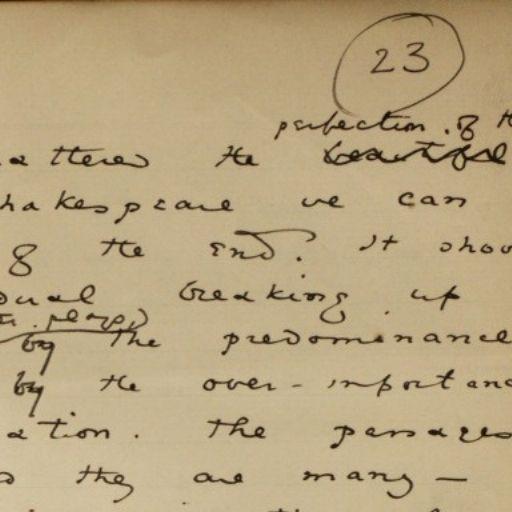 23
perfection of th
the beautiful
hakespeare we can
of the End. It shou
dual breaking up
plays)
by the predominance
by the over-importanc
ation. The passages
they are many —